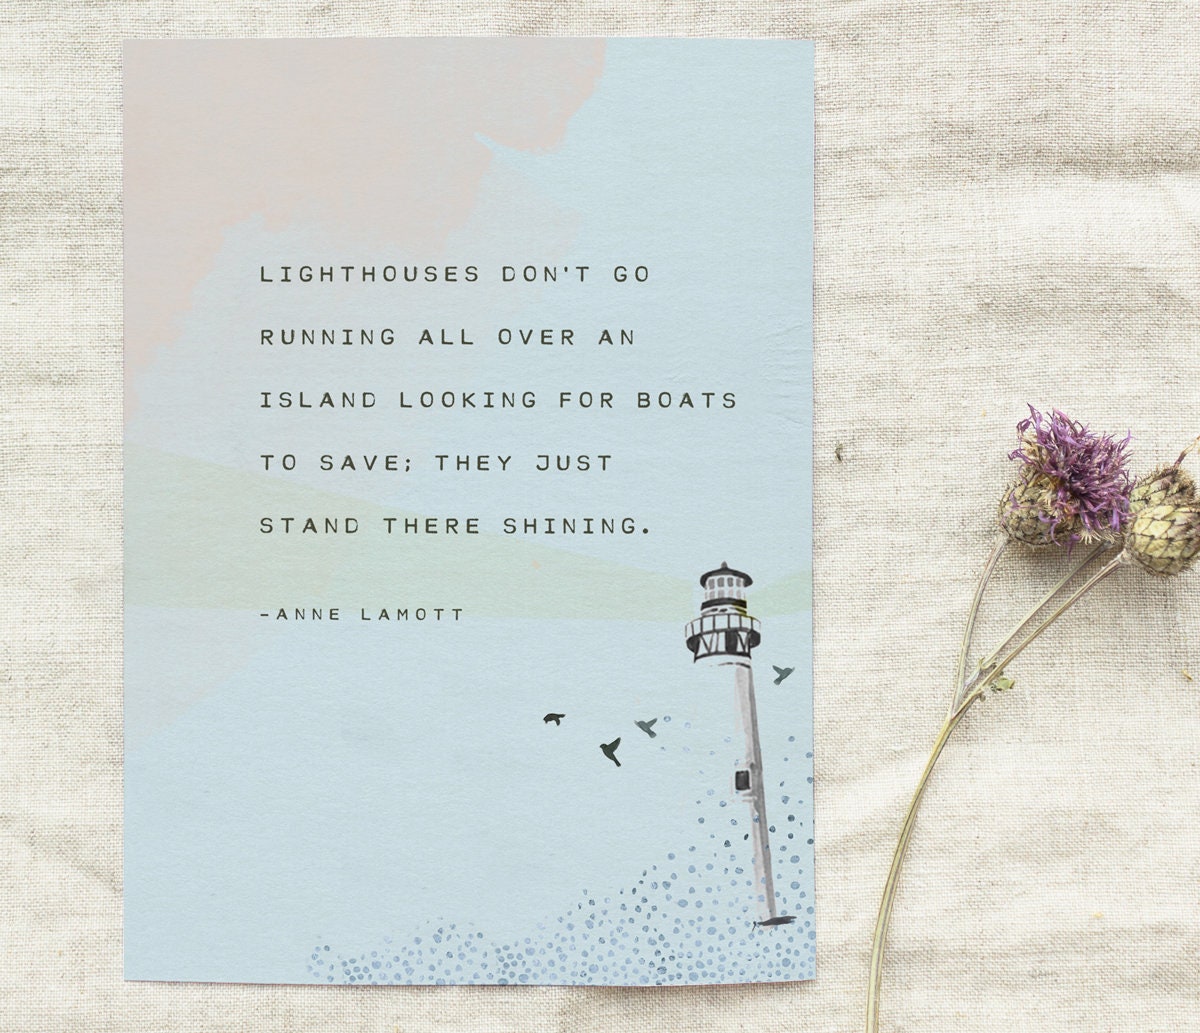 LIGHTHOUSES DON'T GO
RUNNING ALL OVER AN
ISLAND LOOKING FOR BOATS
TO SAVE; THEY JUST
STAND THERE SHINING.
-ANNE LAMOTT